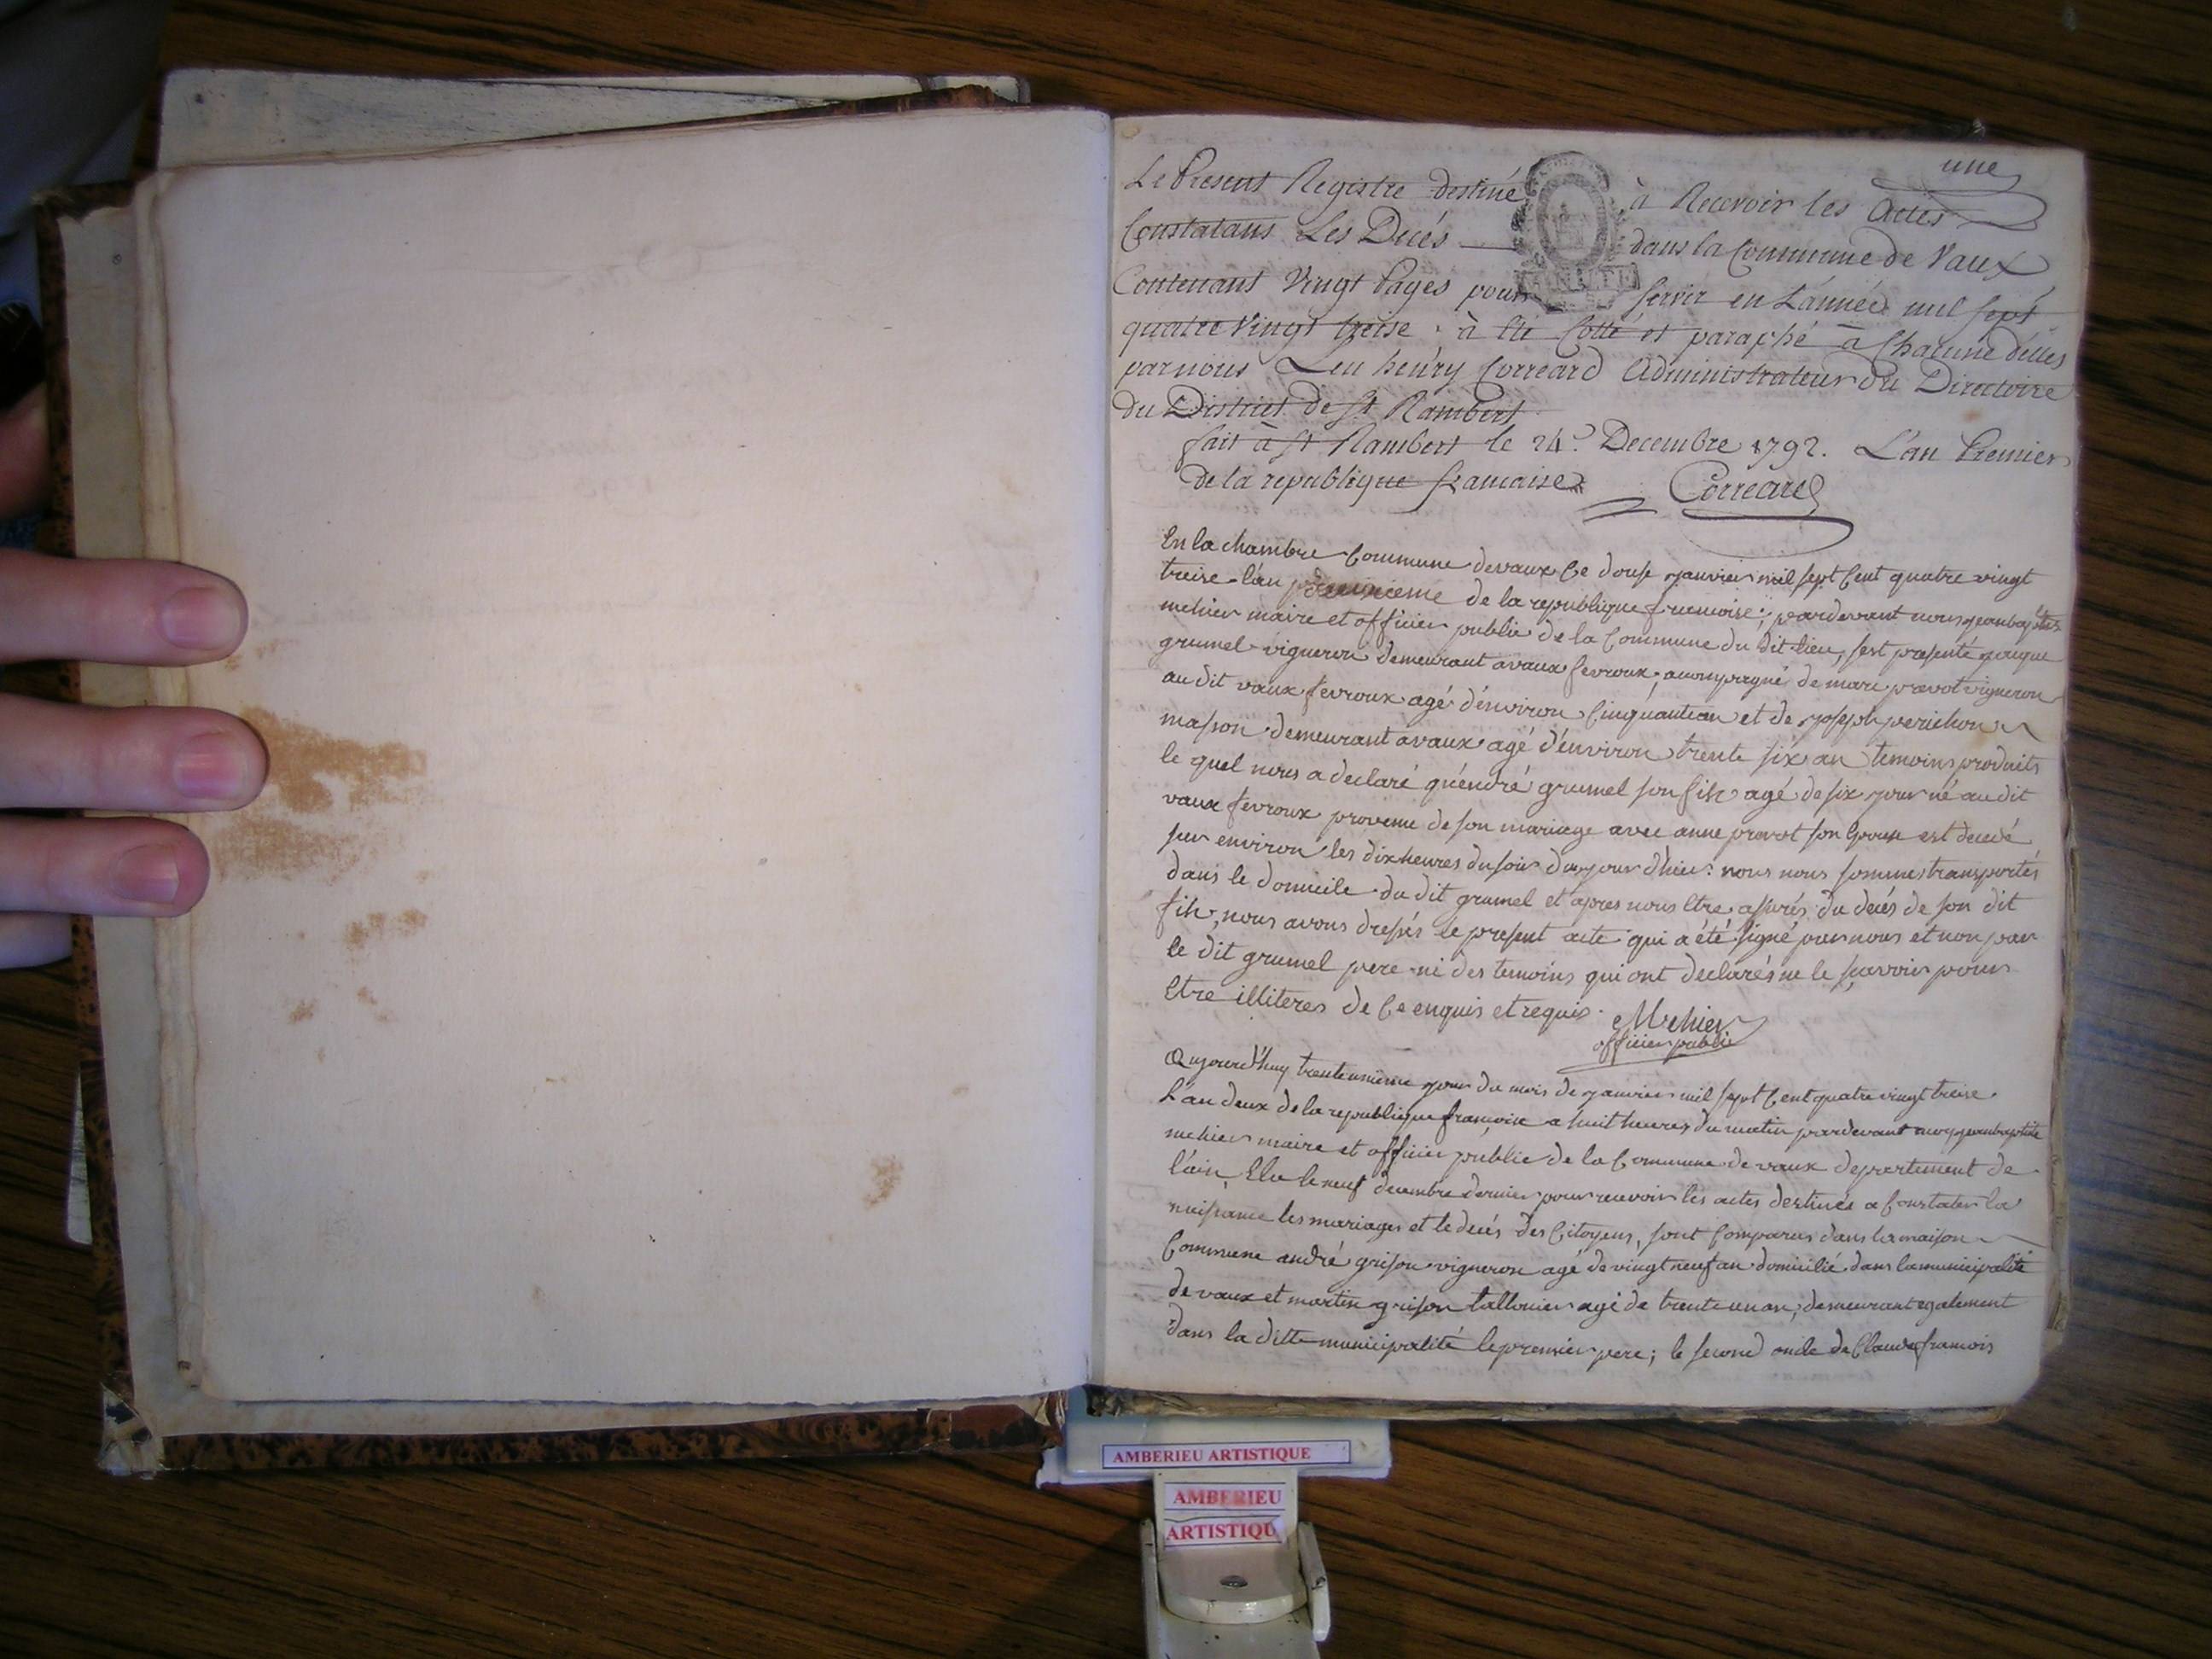 une
Le Present Registre destiné à Recevoir les Actes
Constatans Les Decés dans la Commune de Vaux
Contenant Vingt Pages pour servir en L'année mil sept
quatre Vingt treise à été Cotté et paraphé à Chacune d'elles
par nous Leu henry Correard Administrateur du Directoire
du District de St Rambert
fait à St Rambert le 24e Decembre 1792. L'an Premier
de la republique francaise Correard
En la chambre Commune devaux Ce douse janvier mil sept Cent quatre vingt
treise l'an de la republique francoise; pardevant nous jean baptiste
mehier maire et officier public de la Commune du dit lieu, s'est presenté
grumel vigneron demeurant a vaux fevroux, acompagné de marc prevot vigneron
au dit vaux fevroux agé d'environ Cinquante an et de joseph perichon
masson demeurant a vaux agé d'environ trente six an temoins produits
le quel nous a declaré qu'endré grumel son fils agé de six jour né au dit
vaux fevroux provenu de son mariage avec anne prevot son Epouse est decedé
sur environ les dix heures du soir du jour d'hier: nous nous sommes transportés
dans le domicile du dit grumel et apres nous Etre assurés du decés de son dit
fils, nous avons dressés le present acte qui a été signé par nous et non par
le dit grumel pere ni des temoins qui ont declarés ne le sçavoir pour
Etre illiteres de Ce enquis et requis. Mehier
officier public
Aujourd'huy trente unieme jour du mois de janvier mil sept Cent quatre vingt treise
L'an deux de la republique françoise a huit heures du matin pardevant moy jean baptiste
mehier maire et officier public de la Commune de vaux departement de
l'ain, Elu le neuf decembre dernier pour recevoir les actes destinés a Constater la
naissance les mariages et le decés des Citoyens, sont Comparus dans la maison
Commune andré grison vigneron agé de vingt neuf an domicilié dans la municipalité
de vaux et martin grison tallonier agé de trente un an, demeurant egalement
dans la ditte municipalité le premier pere; le second oncle de Claude francois
AMBERIEU ARTISTIQUE
AMBERIEU
ARTISTIQU